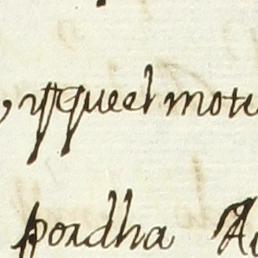 , yqueel motu
pordha A